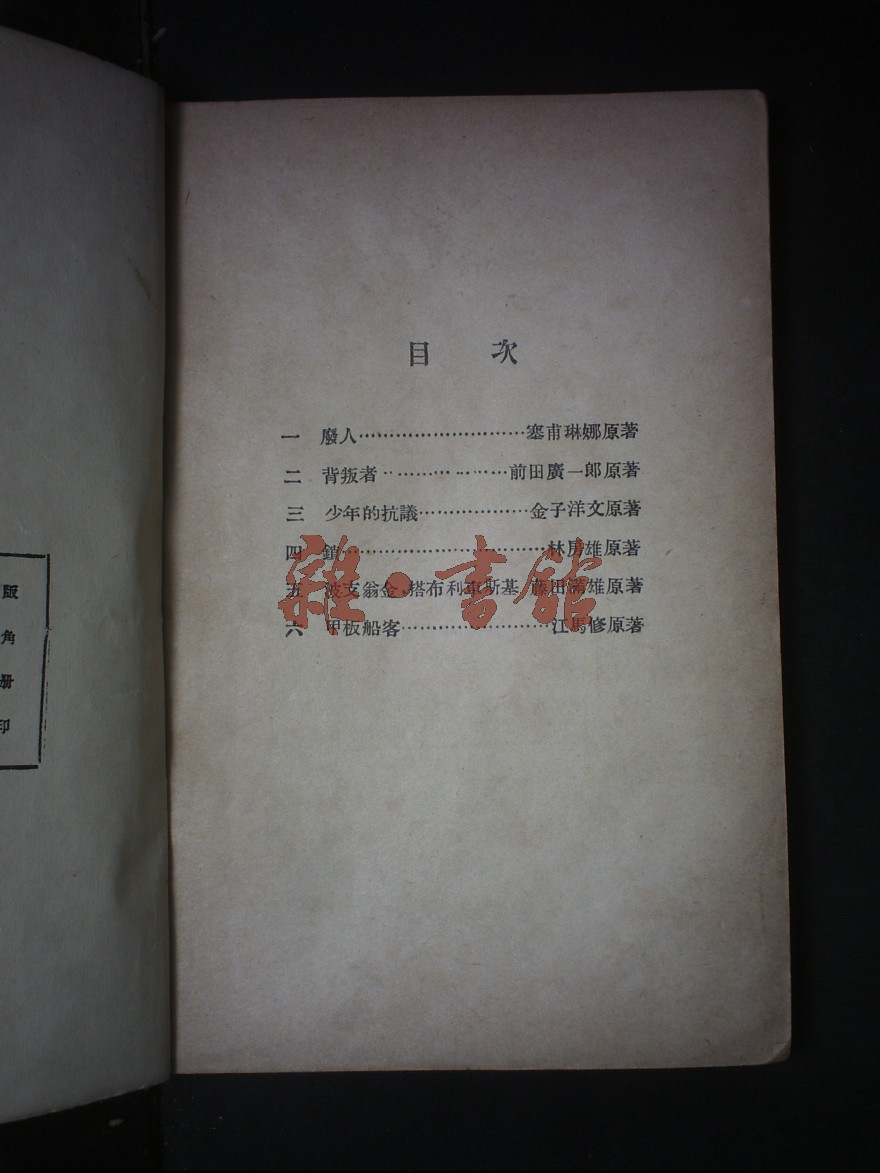 目 次
一 廢人…………………………塞甫琳娜原著
二 背叛者…………………前田廣一郎原著
三 少年的抗議………………金子洋文原著
四 鎖………………………………林房雄原著
五 波支翁金·塔布利車斯基 藤田滿雄原著
六 甲板船客………………………江馬修原著
雜·書館
版
角
册
印